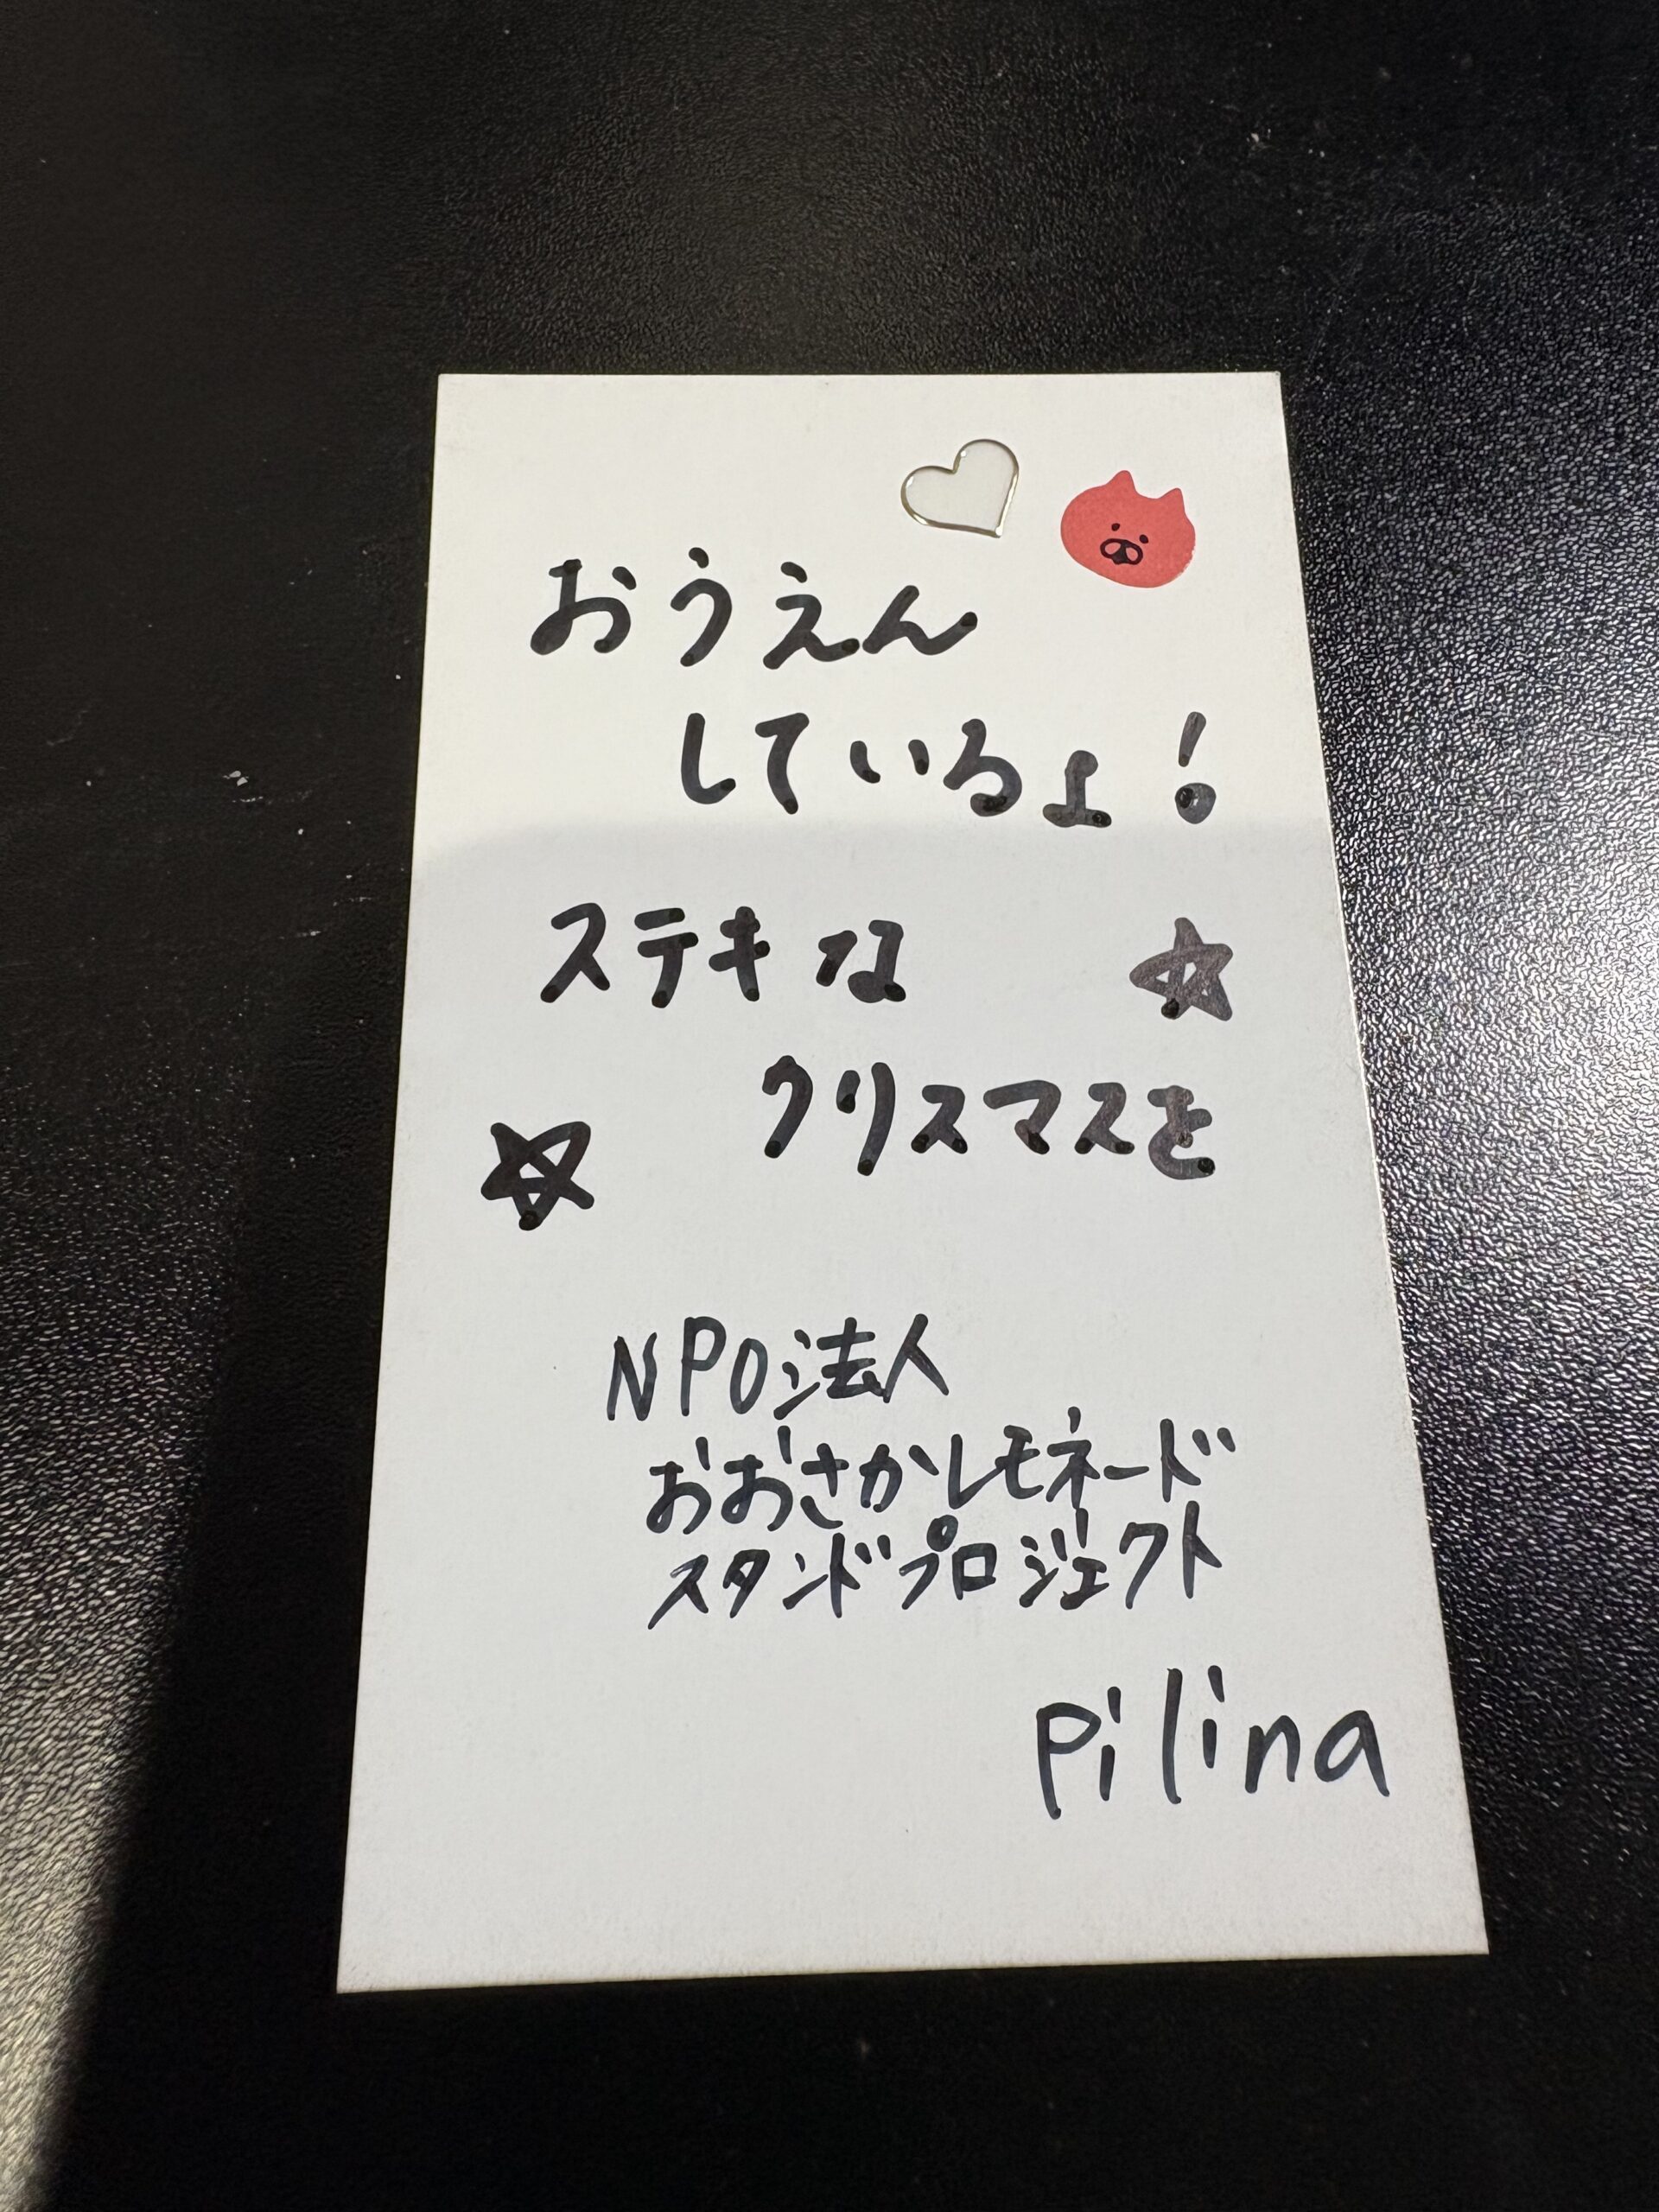 おうえん
しているよ!
ステキな
クリスマスを
NPO法人
おおさかレモネード
スタンドプロジェクト
Pilina